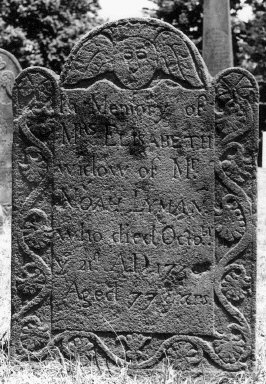 In Memory of
Mrs ELISABETH
widow of Mr
NOAH LYMAN
who died Octobr
A.D. 17
Aged 77 years